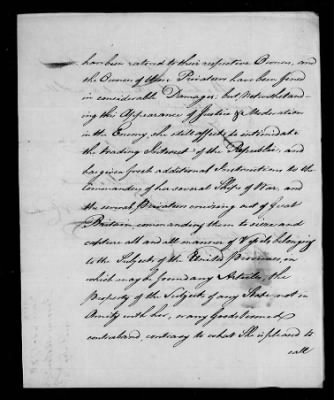 have been restored to their respective Owners, and
the Owners of those Privateers have been fined
in considerable Damages; but notwithstand-
ing this Appearance of Justice & Moderation
in the Enemy, she still affects to intimidate
the trading Interest of the Republic, and
has given fresh additional Instructions to the
Commanders of her several Ships of War, and
the several Privateers cruising out of Great
Britain commanding them to seize and
capture all and all manner of Vessels belonging
to the Subjects of the United Provinces, in
which may be found any Article, the
Property of the Subjects of any State not in
Amity with her, or any Goods deemed
contraband, contrary to what She is pleased to
call